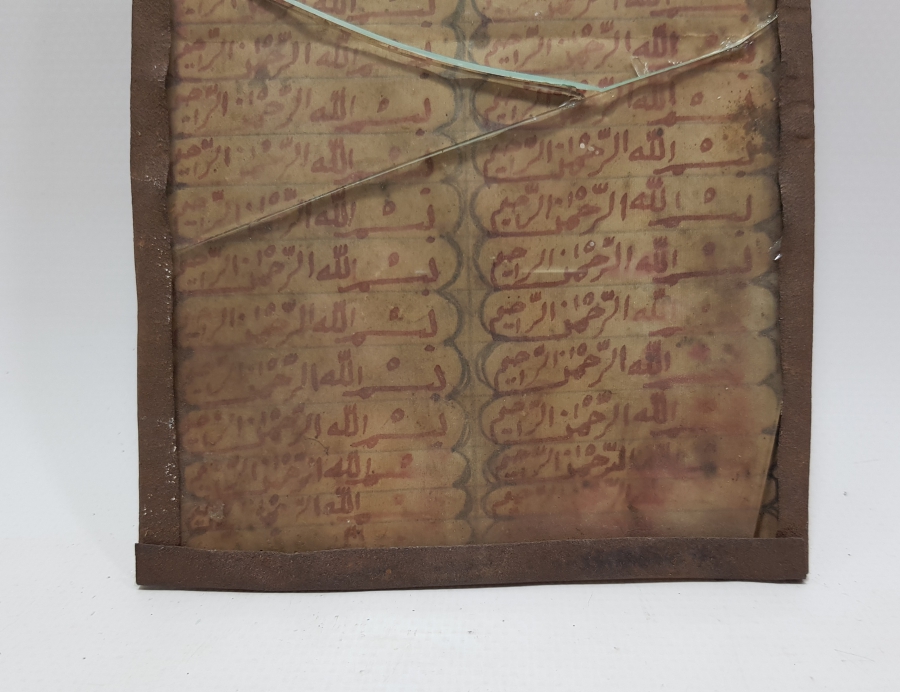 الله
الله
بسم الله الرحمن الرحيم
بسم الله الرحمن الرحيم
بسم الله الرحمن الرحيم
الله الرحمن الرحيم
الله الرحمن الرحيم
الله الرحمن الرحيم
الرحمن الرحيم
الرحيم
الله الرحمن الرحيم
بسم الله الرحمن الرحيم
بسم الله الرحمن الرحيم
بسم الله الرحمن الرحيم
بسم الله الرحمن الرحيم
بسم الله الرحمن الرحيم
بسم الله الرحمن الرحيم
بسم الله الرحمن الرحيم
بسم الله الرحمن الرحيم
الله الرحمن الرحيم